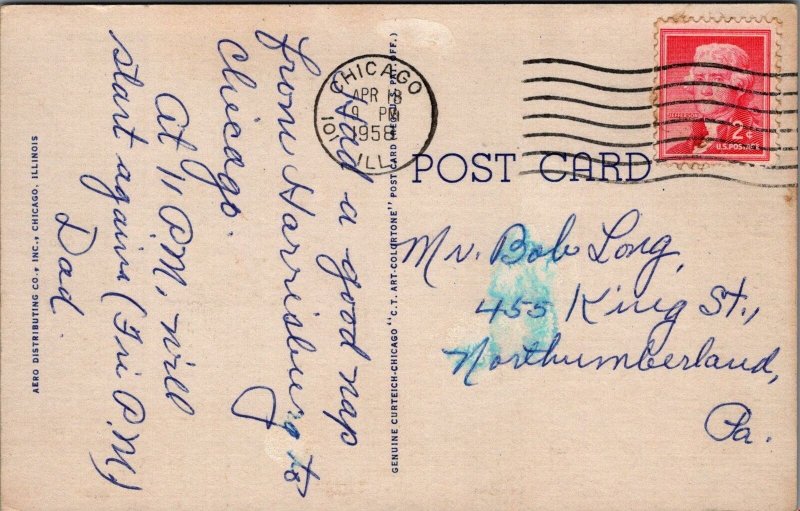 Had a good nap
from Harrisburg to
Chicago.
At 11 P.M, will
start again (Fri P.M.)
Dad.
AERO DISTRIBUTING CO., INC., CHICAGO, ILLINOIS
GENUINE CURTEICH-CHICAGO "C.T. ART-COLORTONE" POST CARD (REG. U.S. PAT. OFF.)
CHICAGO
APR 18
9 PM
1958
101 ILL.
2¢
U.S. POSTAGE
POST CARD
Mr. Bob Long,
455 King St.,
Northumberland,
Pa.